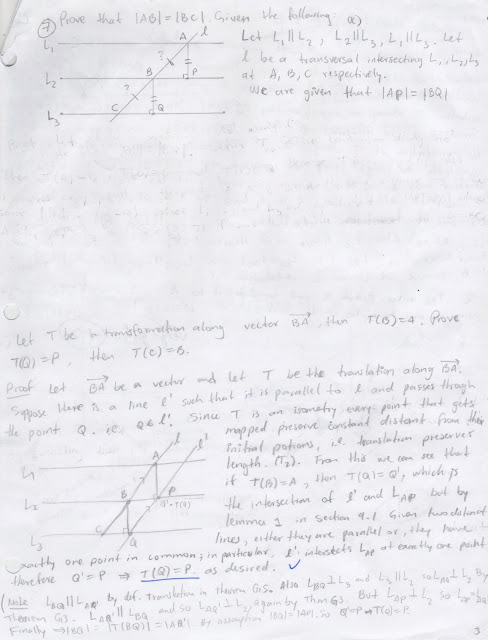 ⑦ Prove that |AB| = |BC|. Given the following a)
Let L₁ ∥ L₂, L₂ ∥ L₃, L₁ ∥ L₃. Let
l be a transversal intersecting L₁, L₂, L₃
at A, B, C respectively.
We are given that |AP| = |BQ|
A l
L₁
?
L₂ B P
?
C Q
L₃
Let T be a transformation along vector BA, then T(B)=A. Prove
T(Q)=P, then T(C)=B.
Proof Let BA be a vector and let T be the translation along BA.
Suppose there is a line l' such that it is parallel to l and passes through
the point Q. i.e. Q∈l'. Since T is an isometry every point that gets
mapped preserve constant distant from their
initial potions, i.e. translation preserves
length. (T₂). From this we can see that
if T(B)=A, then T(Q)=Q', which is
the intersection of l' and L_AP but by
lemma 1 in section 4.1 Given two distinct
lines, either they are parallel or, they have
exactly one point in common; in particular, l' intersects L_AP at exactly one point
therefore Q'=P ⇒ T(Q)=P as desired. ✓
l l'
L₁ A
L₂ B P
Q'=T(Q)
L₃ C Q
(Note L_BQ ∥ L_AQ' by df. translation in theorem G15. Also L_BQ ⊥ L₃ and L₃ ∥ L₂ so L_BQ ⊥ L₂ By
Theorem G3. L_AQ' ∥ L_BQ and so L_AQ' ⊥ L₂ again by Thm G3. But L_AP ⊥ L₂ so
Finally ⇒ |BQ| = |T(BQ)| = |AQ'| By assumption |BQ|=|AP|. So Q'=P ⇒ T(Q)=P.
3